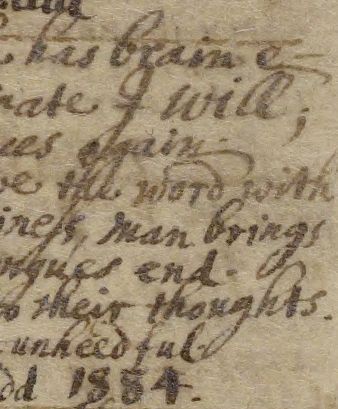 has brain &
ate I will;
ues again.
ve the word with
iness, man brings
ongues end.
o their thoughts.
unheedful
dd 1884.